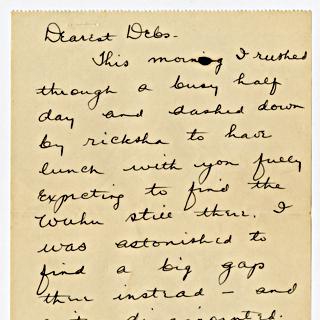 Dearest Debs-
This morning I rushed
through a busy half
day and dashed down
by ricksha to have
lunch with you fully
expecting to find the
Wuhu still there. I
was astonished to
find a big gap
there instead - and
quite disappointed.